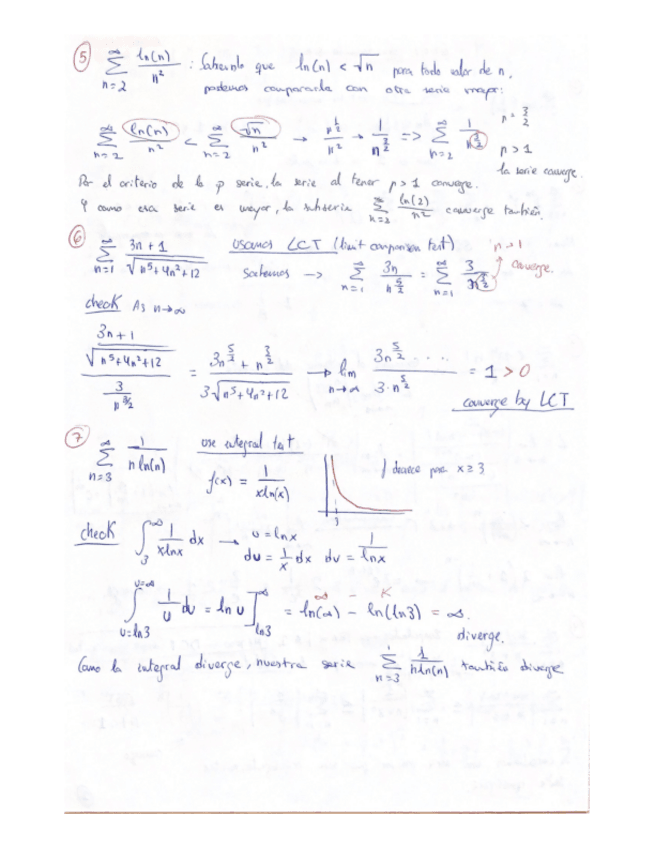 5 ∞∑n=2 ln(n)/n² : Sabiendo que ln(n) < √n para todo valor de n,
podemos compararla con otra serie mayor:
∞∑n=2 ln(n)/n² < ∞∑n=2 √n/n² → n^(1/2)/n² → 1/n^(3/2) => ∞∑n=2 1/n^(3/2) p = 3/2
p > 1
la serie converge.
Por el criterio de la p serie, la serie al tener p > 1 converge.
Y como esa serie es mayor, la subserie ∞∑n=2 ln(2)/n² converge también.
6 ∞∑n=1 (3n + 1)/√(n⁵+4n²+12) usamos LCT (limit comparison test)
→ ∞∑n=1 3n/n^(5/2) = ∞∑n=1 3/n^(3/2) p > 1 converge.
check As n→∞
((3n + 1)/√(n⁵+4n²+12))/(3/n^(3/2)) = (3n^(5/2) + n^(3/2))/(3√(n⁵+4n²+12)) → lim n→∞ (3n^(5/2) ...)/(3·n^(5/2)) = 1 > 0
converge by LCT
7 ∞∑n=3 1/(n ln(n)) use integral test
f(x) = 1/(xln(x)) f decrece para x ≥ 3
3
check ∫₃^∞ 1/(xlnx) dx → u = lnx
du = 1/x dx dv = 1/lnx
∫_(u=ln3)^(u=∞) 1/u du = ln u ]_(ln3)^∞ = ln(∞) - ln(ln3) = ∞.
∞ - K
diverge.
Como la integral diverge, nuestra serie ∑n=3 1/(nln(n)) también diverge